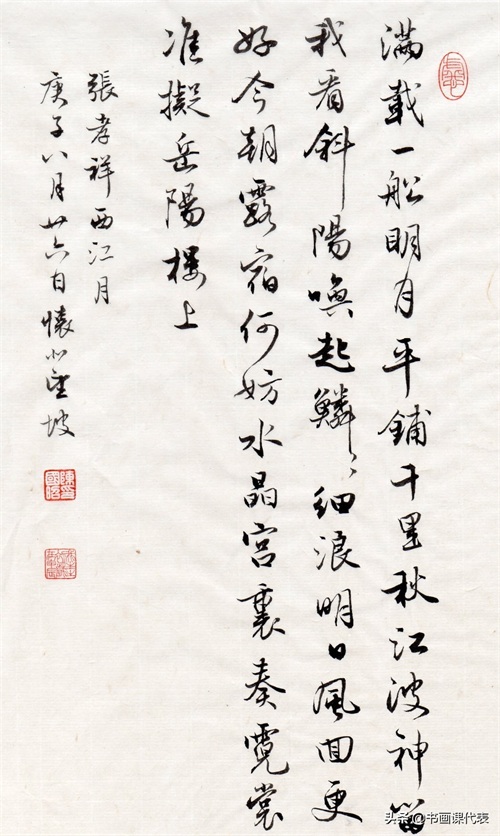 滿載一船明月平鋪千里秋江波神留
我看斜陽喚起鱗々細浪明日風回更
好今朝露宿何妨水晶宮裏奏霓裳
准擬岳陽樓上
張孝祥西江月
庚子八月廿六日懷坡
头条@书画课代表